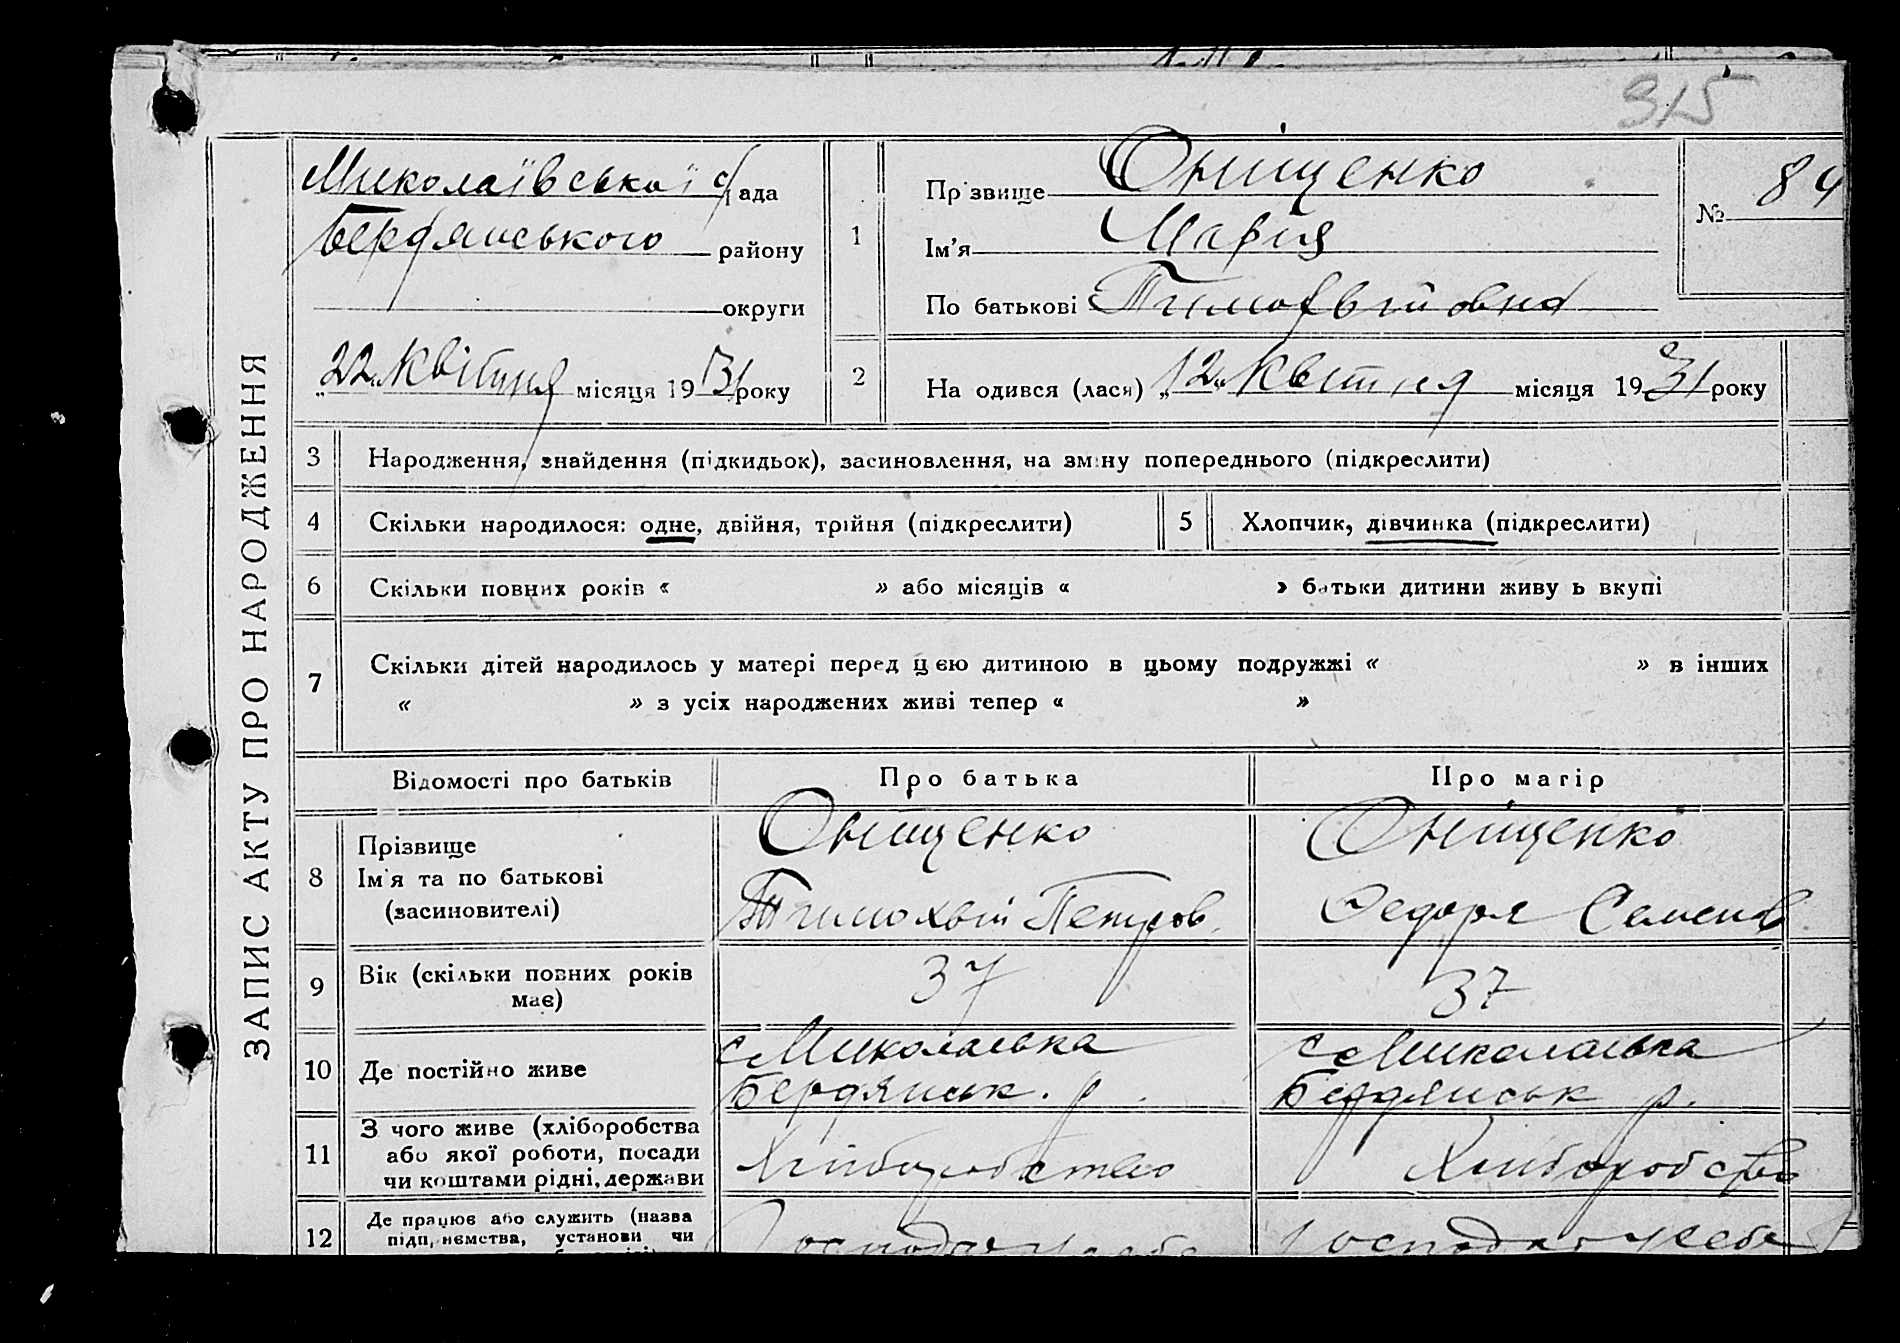 315
ЗАПИС АКТУ ПРО НАРОДЖЕННЯ
Миколаївської с/рада
Бердянського району
округи
„22" Квітня місяця 1931 року
1
Прізвище Онищенко
Ім'я Марія
По батькові Тимофвійовна
№ 84
2
На одився (лася) „12" Квітня місяця 1931 року
3 Народження, знайдення (підкидьок), засиновлення, на зміну попереднього (підкреслити)
4 Скільки народилося: одне, двійня, трійня (підкреслити)
5 Хлопчик, дівчинка (підкреслити)
6 Скільки повних років « » або місяців « » батьки дитини живу ь вкупі
7 Скільки дітей народилось у матері перед цією дитиною в цьому подружжі « » в інших
« » з усіх народжених живі тепер « »
Відомості про батьків Про батька Про матір
8 Прізвище Онищенко Онищенко
Ім'я та по батькові Тимохвій Петров. Федоря Семенов
(засиновителі)
9 Вік (скільки повних років має) 37 37
10 Де постійно живе
с Миколаївка с Миколаївка
Бердянськ. р. Бердянськ р.
11 З чого живе (хліборобства
або якої роботи, посади
чи коштами рідні, держави
Хліборобство Хліборобство
12 Де працює або служить (назва
підприємства, установи чи